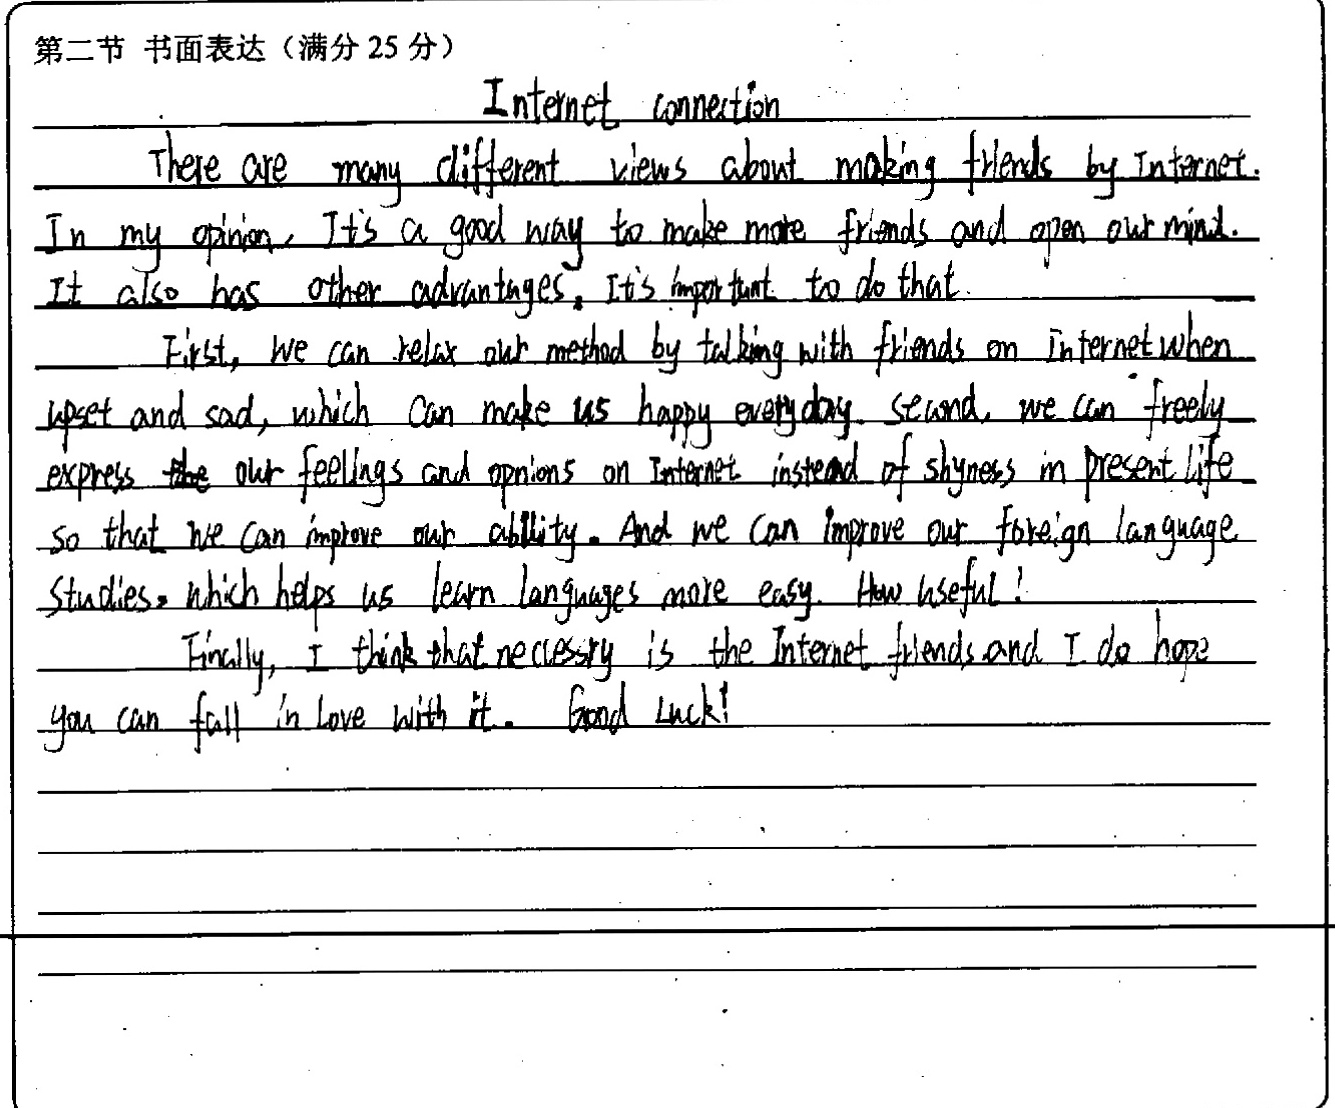 第二节 书面表达（满分 25 分）
Internet connection
There are many different views about making friends by Internet.
In my opinion, It's a good way to make more friends and open our mind.
It also has other advantages. It's important to do that.
First, we can relax our method by talking with friends on Internet when
upset and sad, which can make us happy everyday. Second, we can freely
express our feelings and opnions on Internet instead of shyness in present life
so that we can improve our ability. And we can improve our foreign language
studies, which helps us learn languages more easy. How useful!
Finally, I think that neccessry is the Internet friends and I do hope
you can fall in love with it. Good Luck!